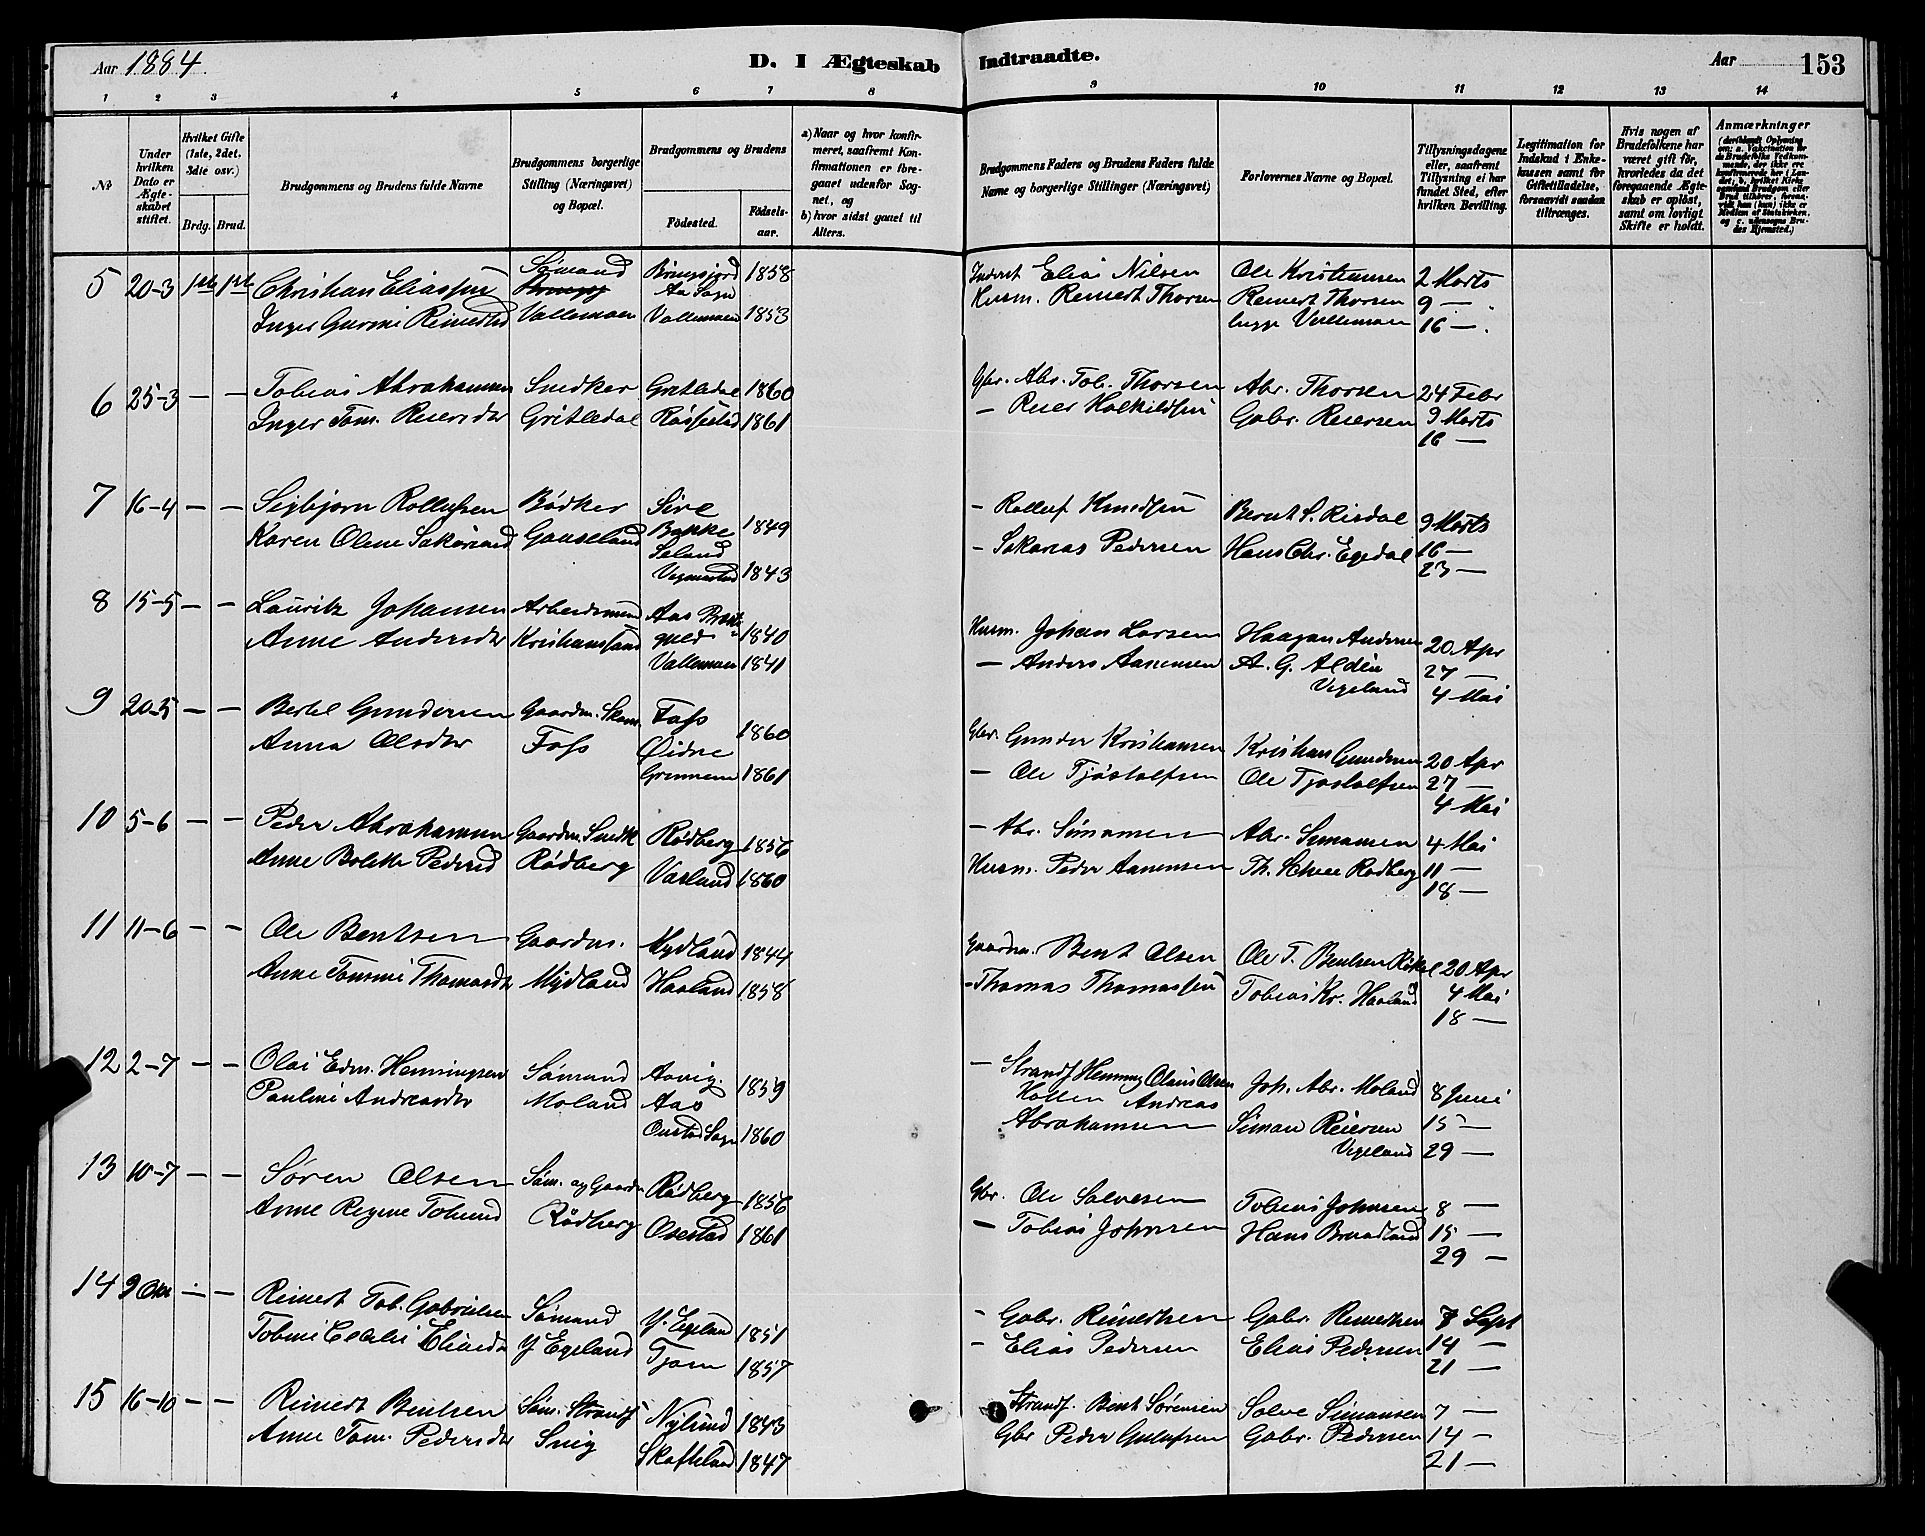 Aar 1884.
D. I Ægteskab
Indtraadte.
Aar
153
1 2 3 4 5 6 7 8 9 10 11 12 13 14
No
Under hvilken Dato er Ægteskabet stiftet.
Hvilket Gifte (1ste, 2det, 3die osv.)
Brdg. Brud.
Brudgommens og Brudens fulde Navne
Brudgommens borgerlige Stilling (Næringsvei) og Bopæl.
Brudgommens og Brudens
Fødested.
Fødsels-aar.
a) Naar og hvor konfirmeret, saafremt Konfirmationen er foregaaet udenfor Sognet, og
b) hvor sidst gaaet til Alters.
Brudgommens Faders og Brudens Faders fulde Navne og borgerlige Stillinger (Næringsvei)
Forlovernes Navne og Bopæl.
Tillysningsdagene eller, saafremt Tillysning ei har fundet Sted, efter hvilken Bevilling.
Legitimation for Indskud i Enkekassen samt for Giftetilladelse, forsaavidt saadan tiltrænges.
Hvis nogen af Brudefolkene har været gift før, hvorledes da det foregaaende Ægteskab er opløst, samt om lovligt Skifte er holdt.
Anmærkninger
5 20-3 1ste 1ste Christian Eliassen Sømand 1858 Elias Nilsen Ole Kristiansen 2 Marts
Aa Sogn Husm. Reinert Thorsen Reinert Thorsen 9 —
Vallemoen Vallemoen 1853 begge Vallemoen 16 —
6 25-3 — — Tobias Abrahamsen Snedker Gritledal 1860 Gbr. Abr. Tob. Thorsen Abr. Thorsen 24 Febr
Inger Tom. Reiersdtr Gritledal Røssestad 1861 — Reier Holkildsen Gabr. Reiersen 9 Marts
16 —
7 16-4 — — Sigbjørn Rollefsen Bødker Sire — Rollef Knudsen Bernt S. Risdal 9 Marts
Karen Olene Gauseland Bakke 1849 — Sakarias Pedersen Hans Chr. Egedal 16 —
1843 23 —
8 15-5 — — Lauritz Johansen Arbeidsmand Aas 1840 Husm. Johan Larsen Haagan Andersen 20 Apr
Anne Andersdtr Kristianssand Vallemoen 1841 — Anders Aanensen A. G. Aldén 27 —
Vigeland 4 Mai
9 20-5 — — Bertel Gundersen Gaardm. Foss 1860 Gbr. Gunder Kristiansen Kristian Gundersen 20 Apr
Anna Olsdtr Foss Øidne — Ole Tjøstolfsen Ole Tjøstolfsen 27 —
1861 4 Mai
10 5-6 — — Peder Abrahamsen Gaardm. Snedk Rødberg 1856 — Abr. Simonsen Abr. Simonsen 4 Mai
Anne Bolette Pedersd Rødberg Vasland 1860 Husm. Peder Aanensen Th. Rødberg 11 —
18 —
11 11-6 — — Ole Bentsen Gaardm. Mydland 1844 Gaardm. Bent Olsen Ole T. Bentsen 20 Apr
Anne Tomine Thomasdtr Mydland Haaland 1858 — Thomas Thomassen Tobias Kr. Haaland 4 Mai
18 —
12 2-7 — — Olai Edm. Henningsen Sømand Aavig 1859 — Strandf Henning Olaus Olsen Joh. Abr. Moland 8 Juni
Pauline Andreasdtr Moland Aas Andreas
Sogn 1860 Abrahamsen Simon Reiersen 15 —
Vigeland 29 —
13 10-7 — — Søren Olsen Søm. og Gaardm Rødberg 1856 Gbr. Ole Salvesen Tobias Johnsen 8 —
Anne Regine Tobiasd Rødberg Osestad 1861 — Tobias Johnsen Hans 15 —
29 —
14 9 Okt — — Reinert Tob. Gabrielsen Sømand Y. Egeland 1851 — Gabr. Reinertsen Gabr. Reinertsen 7 Sept
Tobine Cecilie Eliasdtr Y Egeland Tjom 1857 — Elias Pedersen Elias Pedersen 14 —
21 —
15 16-10 — — Reinert Bentsen Søm. Strandf Nylund 1843 Strandf. Bent Sørensen Salve Simonsen 7 —
Anne Tom. Pedersdtr Snig Skofteland 1847 Gbr Peder Gulufsen Gabr. Pedersen 14 —
21 —